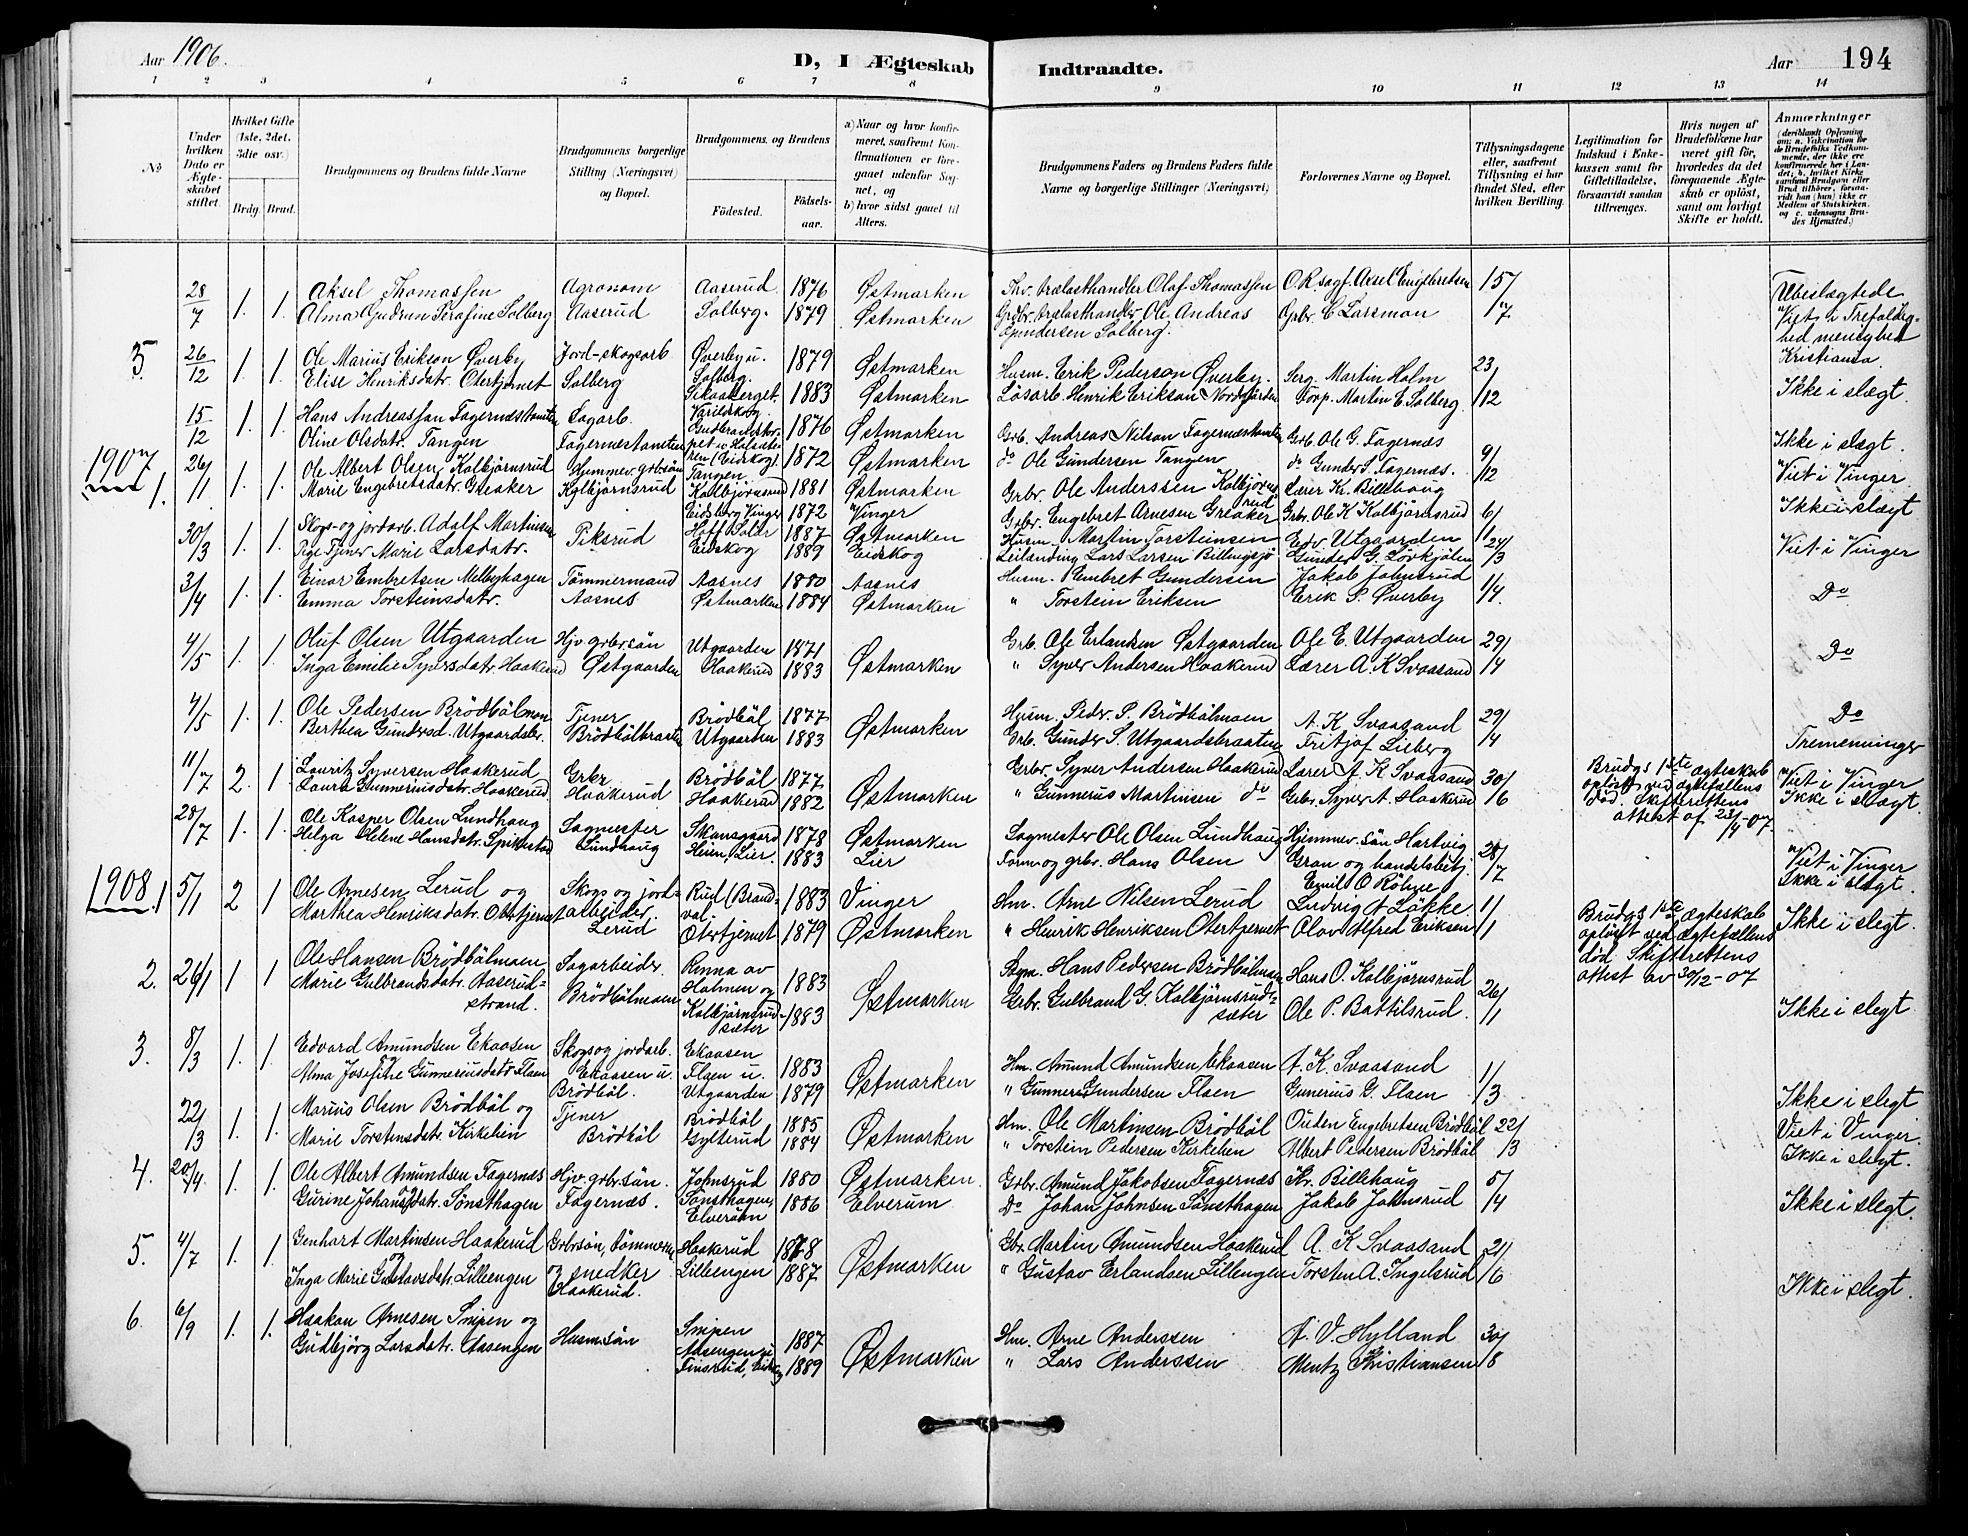 Aar 1906.
D, I Ægteskab
Indtraadte.
Aar 194
1 2 3 4 5 6 7 8 9 10 11 12 13 14
No
Under hvilken Dato er Ægteskabet stiftet.
Hvilket Gifte (1ste, 2det, 3die osv.)
Brdg. Brud.
Brudgommens og Brudens fulde Navne
Brudgommens borgerlige Stilling (Næringsvei) og Bopæl.
Brudgommens og Brudens
Fødested.
Fødselsaar.
a) Naar og hvor konfirmeret, saafremt Konfirmationen er foregaaet udenfor Sognet, og
b) hvor sidst gaaet til Alters.
Brudgommens Faders og Brudens Faders fulde Navne og borgerlige Stillinger (Næringsvei)
Forlovernes Navne og Bopæl.
Tillysningsdagene eller, saafremt Tillysning ei har fundet Sted, efter hvilken Bevilling.
Legitimation for Indskud i Enkekassen samt for Giftetilladelse, forsaavidt saadan tiltrænges.
Hvis nogen af Brudefolkene har været gift før, hvorledes da det foregaaende Ægteskab er opløst, samt om lovligt Skifte er holdt.
Anmærkninger
28/7 1. 1. Aksel Thomassen Agronom Aaserud 1876 Østmarken Thv. trælasthandler Olaf Thomassen O.R.sagf. Aksel Engebretsen 15/7 Ubeslægtede
Alma Gudrun Serafine Solberg Aaserud Solberg. 1879 Østmarken Grdbr. trælasthandler Ole Andreas Gundersen Solberg. Grbr. C Larsmon Viet i Trefoldighed menighed Kristiania
5. 26/12 1. 1. Ole Marius Erikson Øverby Jord-skogsarb. Øverby u. Solberg. 1879 Østmarken Husm. Erik Pederson Øverby. Serg. Martin Holm 23/12
Elise Henriksdatr. Otertjernet Solberg 1883 Østmarken Løsarb. Henrik Erikson Nordgården Torp. Martin E. Solberg Ikke i slægt.
15/12 1. 1. Hans Andreassen Fagernæstomten Sagarb. 1876 Østmarken Grb. Andreas Nilson Fagernæstomten Grb. Ole G. Fagernæs 9/12
Oline Olsdatr. Tangen Fagernæstomten Tangen 1872 Østmarken do Ole Gundersen Tangen do Gunder S. Fagernæs. Ikke i slægt.
1907
1. 26/1 1. 1. Ole Albert Olsen Kolbjørnsrud Hemmev. grbrsøn Kolbjørnsrud 1881 Østmarken Grbr. Ole Anderssen Kolbjørnsrud Lærer Kr. Billehaug 6/1 Viet i Vinger
Marie Engebretsdatr. Greaker Kolbjørnsrud Eidsberg Vinger 1872 Vinger Grbr. Engebret Arnesen Greaker Grbr. Ole K Kolbjørnsrud Ikke i slægt
30/3 1. 1. Skogs- og jordarb. Adolf Martinsen Piksrud Hoff Solør 1887 Østmarken Husm. Martin Torsteinsen Edv. Utgaarden 24/3 Viet i Vinger
Pige Tjener Marie Larsdatr. Eidskog 1889 Eidskog Leilending Lars Larsen Billingsjø Gunder G. Løvkjølen
3/4 1. 1. Einar Embretsen Melbyhagen Tömmermand Aasnes 1880 Aasnes Husm. Embret Gundersen Jakob Johnsrud 1/4. Do
Emma Torsteinsdatr. Aasnes Østmarken 1884 Østmarken " Torstein Eriksen Erik P. Øverby
4/5 1. 1. Oluf Olsen Utgaarden Hjv. grbrsøn Utgaarden 1871 Østmarken Grb. Ole Erlandsen Østgaarden Ole E. Utgaarden 29/4 Do
Inga Emilie Syversdatr. Haakerud Østgaarden Haakerud 1883 " Syver Andersen Haakerud Lærer A. K Svaasand
4/5 1. 1. Ole Pedersen Brödbölmoen Tjener Brödböl 1877 Østmarken Husm. Pedr. P. Brödbölmoen A. K Svaasand 29/4 Do
Berthea Gundersd. Utgaardsbr. Brödbölbraaten Utgaarden 1883 Grb. Gunder S. Utgaardsbraaten Fritjof Lieberg Tremenninger
11/7 2. 1 Lauritz Syversen Haakerud Grbr Brödböl 1877 Østmarken Grbr. Syver Andersen Haakerud Lærer A K Svaasand 30/6 Brudgs 1ste ægteskab opløst ved ægtefællens død. Skifterettens attest af 23/4-07. Viet i Vinger
Laura Gunneriusdatr. Haakerud Haakerud Haakerud 1882 " Gunnerus Martinsen do Grbr. Syver A. Haakerud Ikke i slægt.
28/7 1. 1. Ole Kasper Olsen Lundhaug Sagmester Skansgaard 1878 Østmarken Sagmester Ole Olsen Lundhaug Hjemmev. søn Hartvig Gran og handelsbetj. Emil O Röhne 28/7 Viet i Vinger
Helga Helene Hansdatr. Spikkestad Lundhaug Heien, Lier. 1883 Lier Form. og grbr. Hans Olsen Ikke i slægt.
1908.
1 5/1 2 1 Ole Arnesen Lerud og Skogs og jordarbeider. Lerud Rud (Brandval. 1883 Vinger Hm. Arne Nilsen Lerud Ludvig A Løkke. 1/1 Brudgs 1ste Ægteskab opløst ved ægtefællens død Skifterettens attest av 30/12-07
Marthea Henriksdatr. Otertjernet Otertjernet 1879 Østmarken " Henrik Henriksen Otertjernet Olav Alfred Eriksen Ikke i slegt.
2. 26/1 1 1 Ole Hansen Brödbölmoen Sagarbeider. Rinna av Holmen og 1883 Østmarken Hans Pedersen Brödbölmoen Hans O. Kolbjørnsrud 26/1
Marie Gulbrandsdatr. Aaserudstrand. Brödbölmoen Kolbjørnsrudsæter 1883 Grbr. Gulbrand G. Kolbjørnsrudsæter Ole P. Battilsrud. Ikke i slegt
3. 8/3 1. 1. Edvard Amundsen Ekaasen Skogs og jordarb. Ekaasen 1883 Østmarken Hm. Amund Amundsen Ekaasen A. K. Svaasand 1/3
og Alma Josefine Gunneriusdatr Flaen Ekaasen u. Brödböl. Flaen u. Utgaarden 1879 " Gunnerius Gundersen Flaen Gunerius G. Flaen Ikke i slegt
22/3 1. 1. Marius Olsen Brödböl og Tjener Brödböl 1885 Østmarken Hm. Ole Martinsen Brödböl Ouden Engebretsen Brödböl 22/3 Viet i Vinger.
Marie Torstensdatr. Kirkelien Brödböl Gylterud 1884 " Torstein Pedersen Kirkelien Albert Pedersen Brödböl Ikke i slegt.
4. 20/4 1. 1. Ole Albert Amundsen Fagernæs Hjv. grbr. søn. Johnsrud 1880 Østmarken. Grbr. Amund Jakobsen Fagernæs Kr. Billehaug 5/4
Gurine Johansdatr. Sönsthagen Fagernæs. Sönsthagen, Elverum 1886 Elverum Do Johan Johnsen Sönsthagen Jakob Johnsrud Ikke i slegt.
5. 4/7 1. 1. Genhart Martinsen Haakerud Grbrsøn, tømmerm. Haakerud 1878 Østmarken Gbr. Martin Amundsen Haakerud A. K Svaasand 21/6
og Inga Marie Gustavsdatr. Lillengen og snedker Haakerud. Lillengen 1887 " Gustav Erlandsen Lillengen Torsten A. Ingelsrud Ikke i slegt.
6. 6/9 1. 1. Haakon Arnesen Snipen og Husm.søn Snipen 1887 Østmarken Hm. Arne Anderssen A. V. Hylland 30/8
Gudbjörg Larsdatr. Aasengen Aasengen i Finsrud, 1889 " Lars Anderssen Mentz Kristiansen